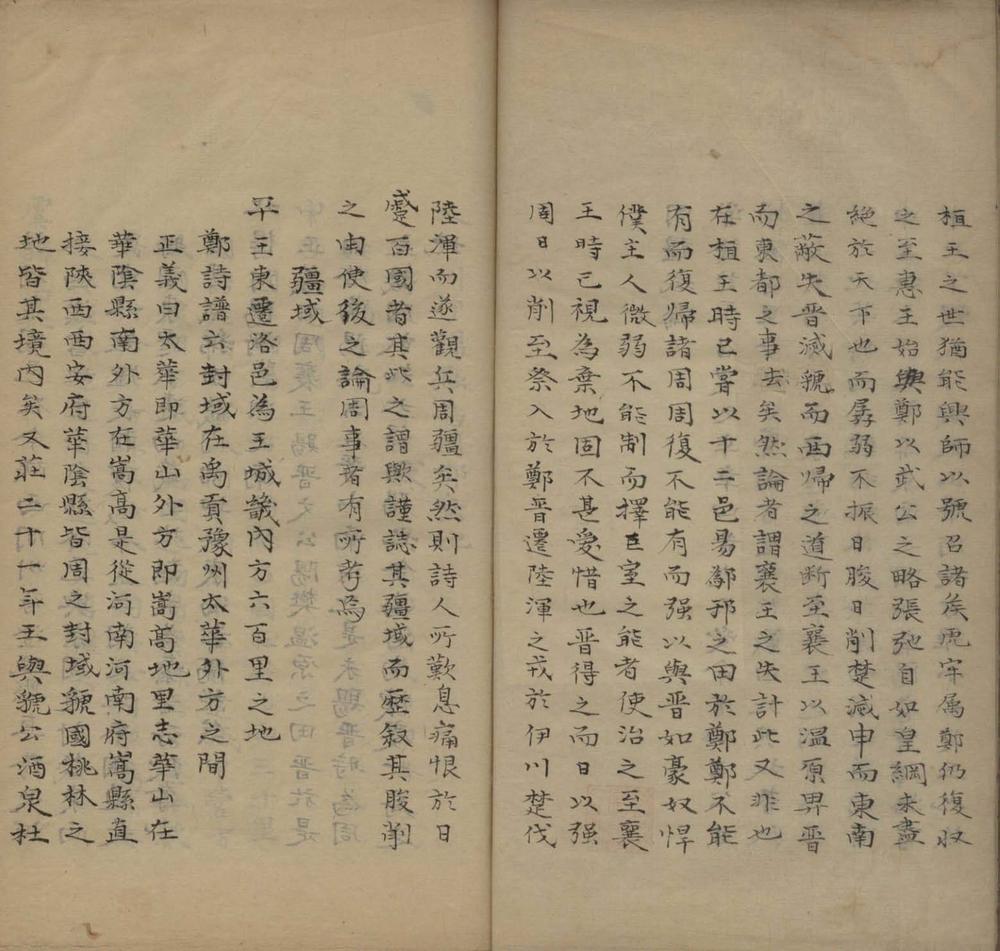 桓王之世猶能興師以號召諸侯虎牢属鄭仍復収
之至惠王始與鄭以武公之略張弛自如皇綱未盡
絶於天下也而孱弱不振日朘日削楚滅申而東南
之蔽失晋滅虢而西歸之道断至襄王以温原畀晋
而東都之事去矣然論者謂襄王之失計此又非也
在桓王時已嘗以十二邑易鄔邘之田於鄭鄭不能
有而復歸諸周周復不能有而强以與晋如豪奴悍
僕主人微弱不能制而擇巨室之能者使治之至襄
王時已視為棄地固不甚愛惜也晋得之而日以强
周日以削至祭入於鄭晋遷陸渾之戎於伊川楚伐
陸渾而遂觀兵周疆矣然則詩人所歎息痛恨於日
蹙百國者其此之謂歟謹誌其疆域而歷叙其朘削
之由使後之論周事者有所考焉
疆域
平王東遷洛邑為王城畿內方六百里之地
鄭詩譜云封域在禹貢豫州太華外方之間
正義曰太華即華山外方即嵩高地里志華山在
華陰縣南外方在嵩高是從河南河南府嵩縣直
接陝西西安府華陰縣皆周之封域虢國桃林之
地皆其境內矣又莊二十一年王與虢公酒泉杜